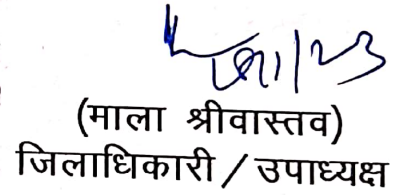 (माला श्रीवास्तव)
जिलाधिकारी / उपाध्यक्ष